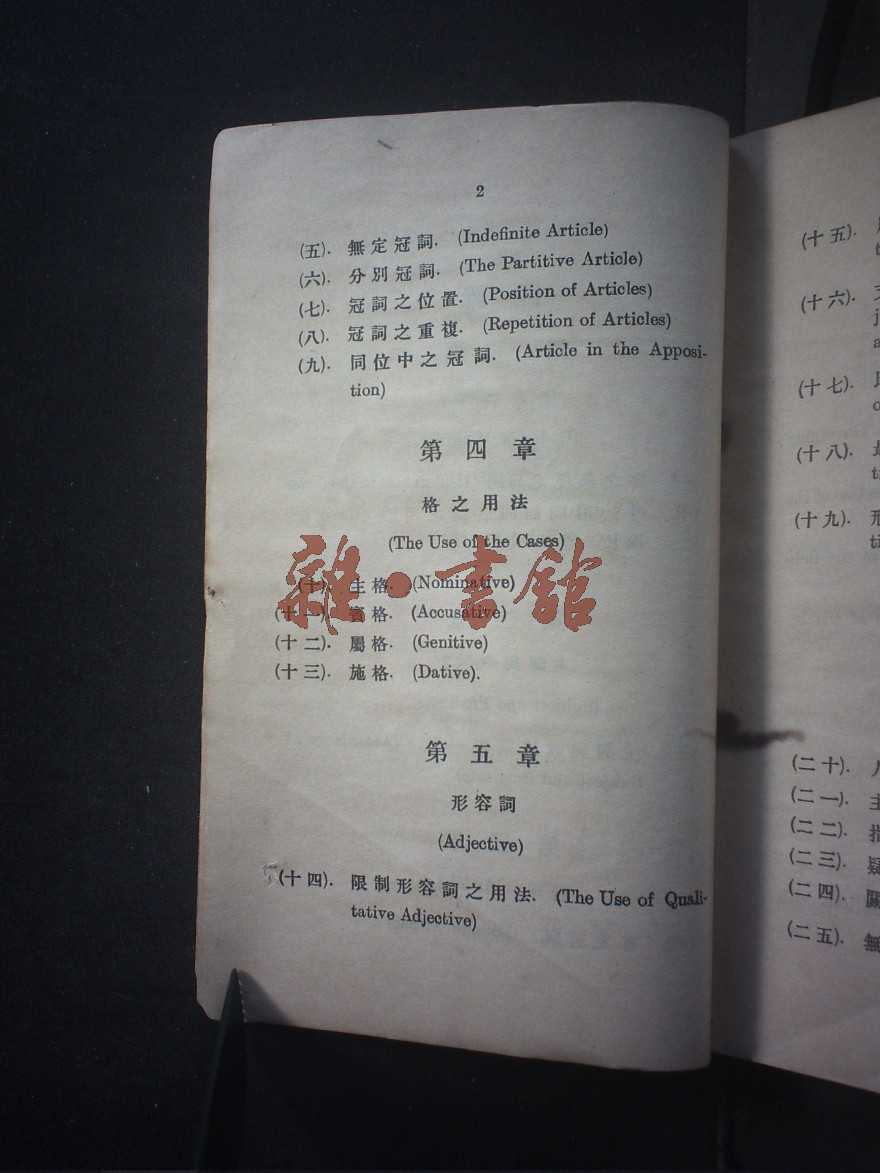 2
(五). 無定冠詞. (Indefinite Article)
(六). 分別冠詞. (The Partitive Article)
(七). 冠詞之位置. (Position of Articles)
(八). 冠詞之重複. (Repetition of Articles)
(九). 同位中之冠詞. (Article in the Apposi-
tion)
第四章
格之用法
(The Use of the Cases)
(十). 主格. (Nominative)
(十一). 賓格. (Accusative)
(十二). 屬格. (Genitive)
(十三). 施格. (Dative).
第五章
形容詞
(Adjective)
(十四). 限制形容詞之用法. (The Use of Quali-
tative Adjective)
雜·書館
(十五).
(十六).
(十七).
(十八).
(十九).
(二十).
(二一). 主
(二二). 指
(二三). 疑
(二四). 關
(二五). 無